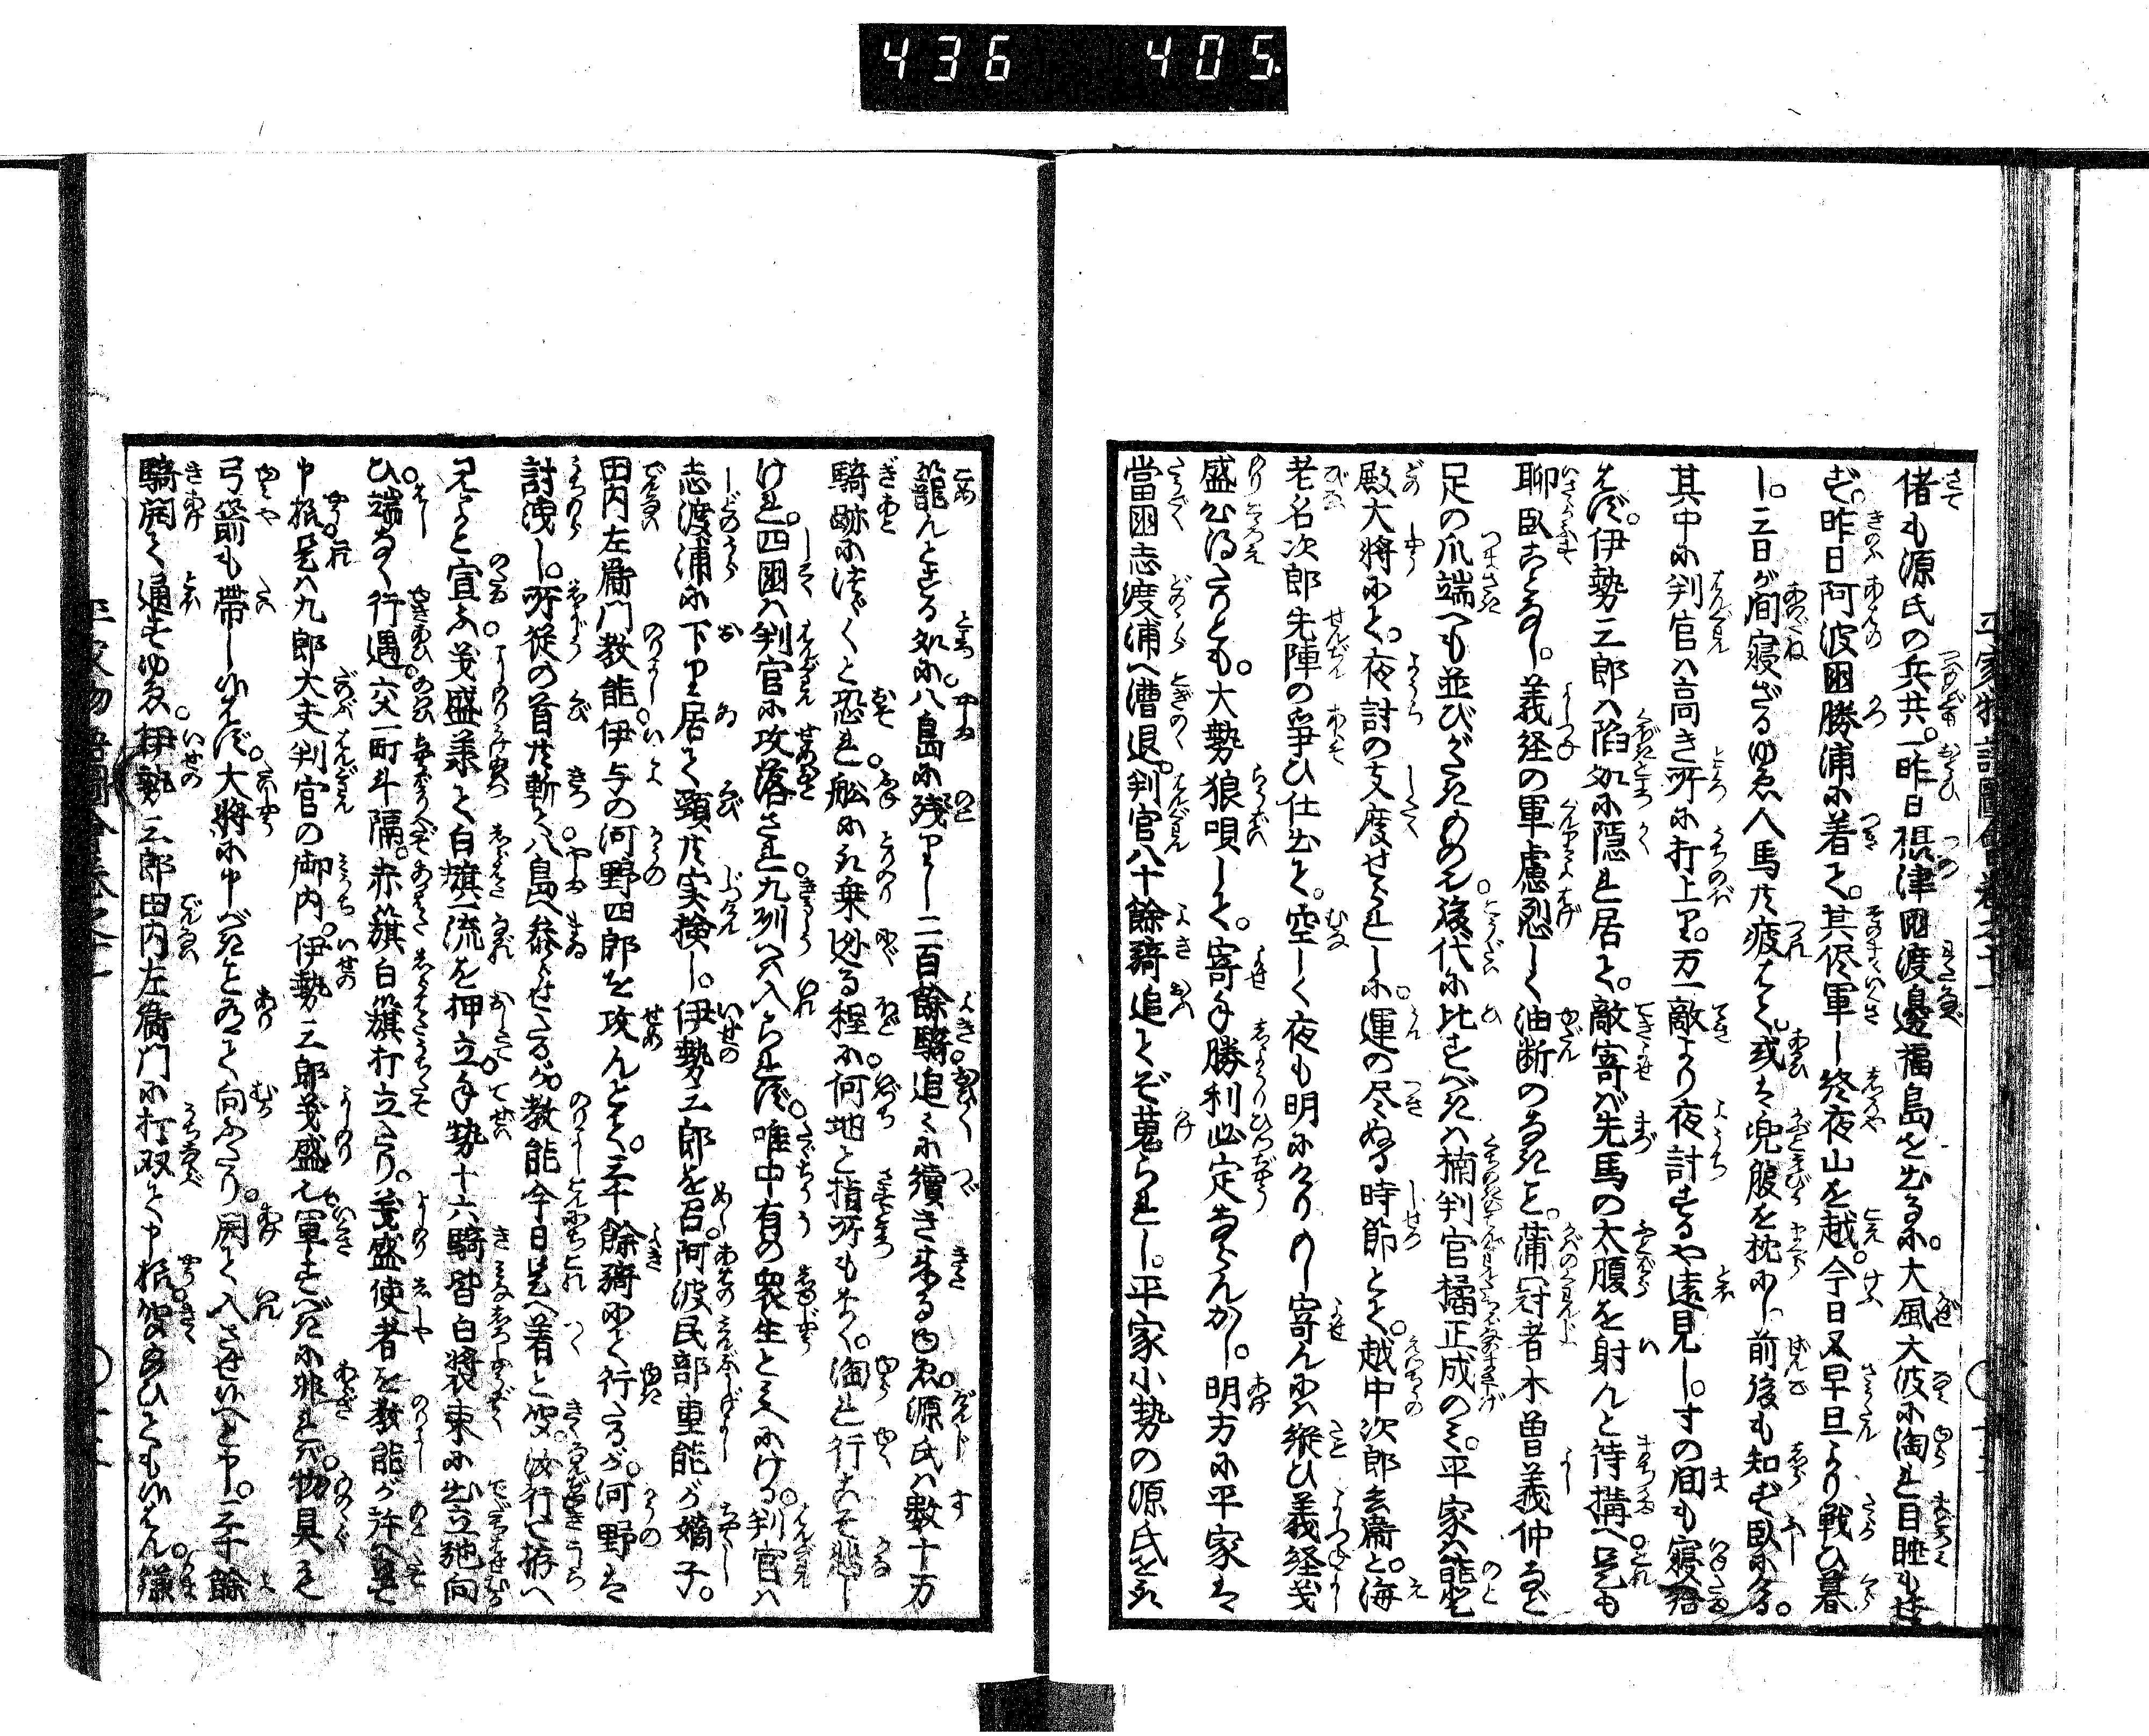 436 405.
偖も源氏の兵共。一昨日摂津国渡邊福島を出るに。大風大波に淘れ目睡もせ
ず。昨日阿波国勝浦に着て。其侭軍し終夜山を越。今日又早旦より戦ひ暮
し。三日が間寝ざるゆゑ人馬共疲はて。或は兜腹を枕にし前後も知ず臥にける。
其中に判官は高き所に打上り。万一敵より夜討するや遠見し。すの間も寝給
はず。伊勢三郎は陷処に隠れ居て。敵寄ば先馬の太腹を射んと待構へ是も
聊臥ことなし。義経の軍慮烈しく油断のなきこと。蒲冠者木曽義仲など
足の爪端へも並びがたきのみか後代に比すべきは楠判官橘正成のみ。平家は能登
殿大将にて。夜討の支度せられしに。運の尽ぬる時節とて。越中次郎兵衛と。海
老名次郎先陣の争ひ仕出て。空しく夜も明にけりのし寄んには縦ひ義経義
盛心得たりとも。大勢狼唄して。寄手勝利必定ならんかし。明方に平家は
當国志渡浦へ漕退。判官八十餘騎追てぞ蒐られし。平家小勢の源氏を取
籠んとする処に。八島に残りし二百餘騎追々に續き来るゆゑ。源氏は数十万
騎跡につゞくと恐れ。舩に取乗出る程に。何地と指所もなく。淘れ行こそ悲し
けれ。四国は判官に攻落され。九州へは入られず。唯中有の衆生とみへにける。判官は
志渡浦に下り居て。頸共実検し。伊勢三郎を召。阿波民部重能が嫡子。
田内左衛門教能。伊与の河野四郎を攻んとて。三千餘騎にて行たるが。河野をば
討洩し。所従の首共斬て八島へ參らせたるが。教能今日是へ着と聞。汝行て拵へ
見よと宣ふ。義盛承て白旗一流を押立。手勢十六騎皆白装束に出立馳向
ひ。端なく行遇。交一町斗隔。赤旗白旗打立たり。義盛使者を教能が許へ立
申振是は九郎大夫判官の御内。伊勢三郎義盛也。軍すべきに非れば物具もせ
弓箭も帯し候はず。大将に申べきこと有て向ふたり。開て入させ候へと申。三千餘
騎開て通すゆゑ。伊勢三郎田内左衛門に打双て申振。聞給ひても候はん。鎌